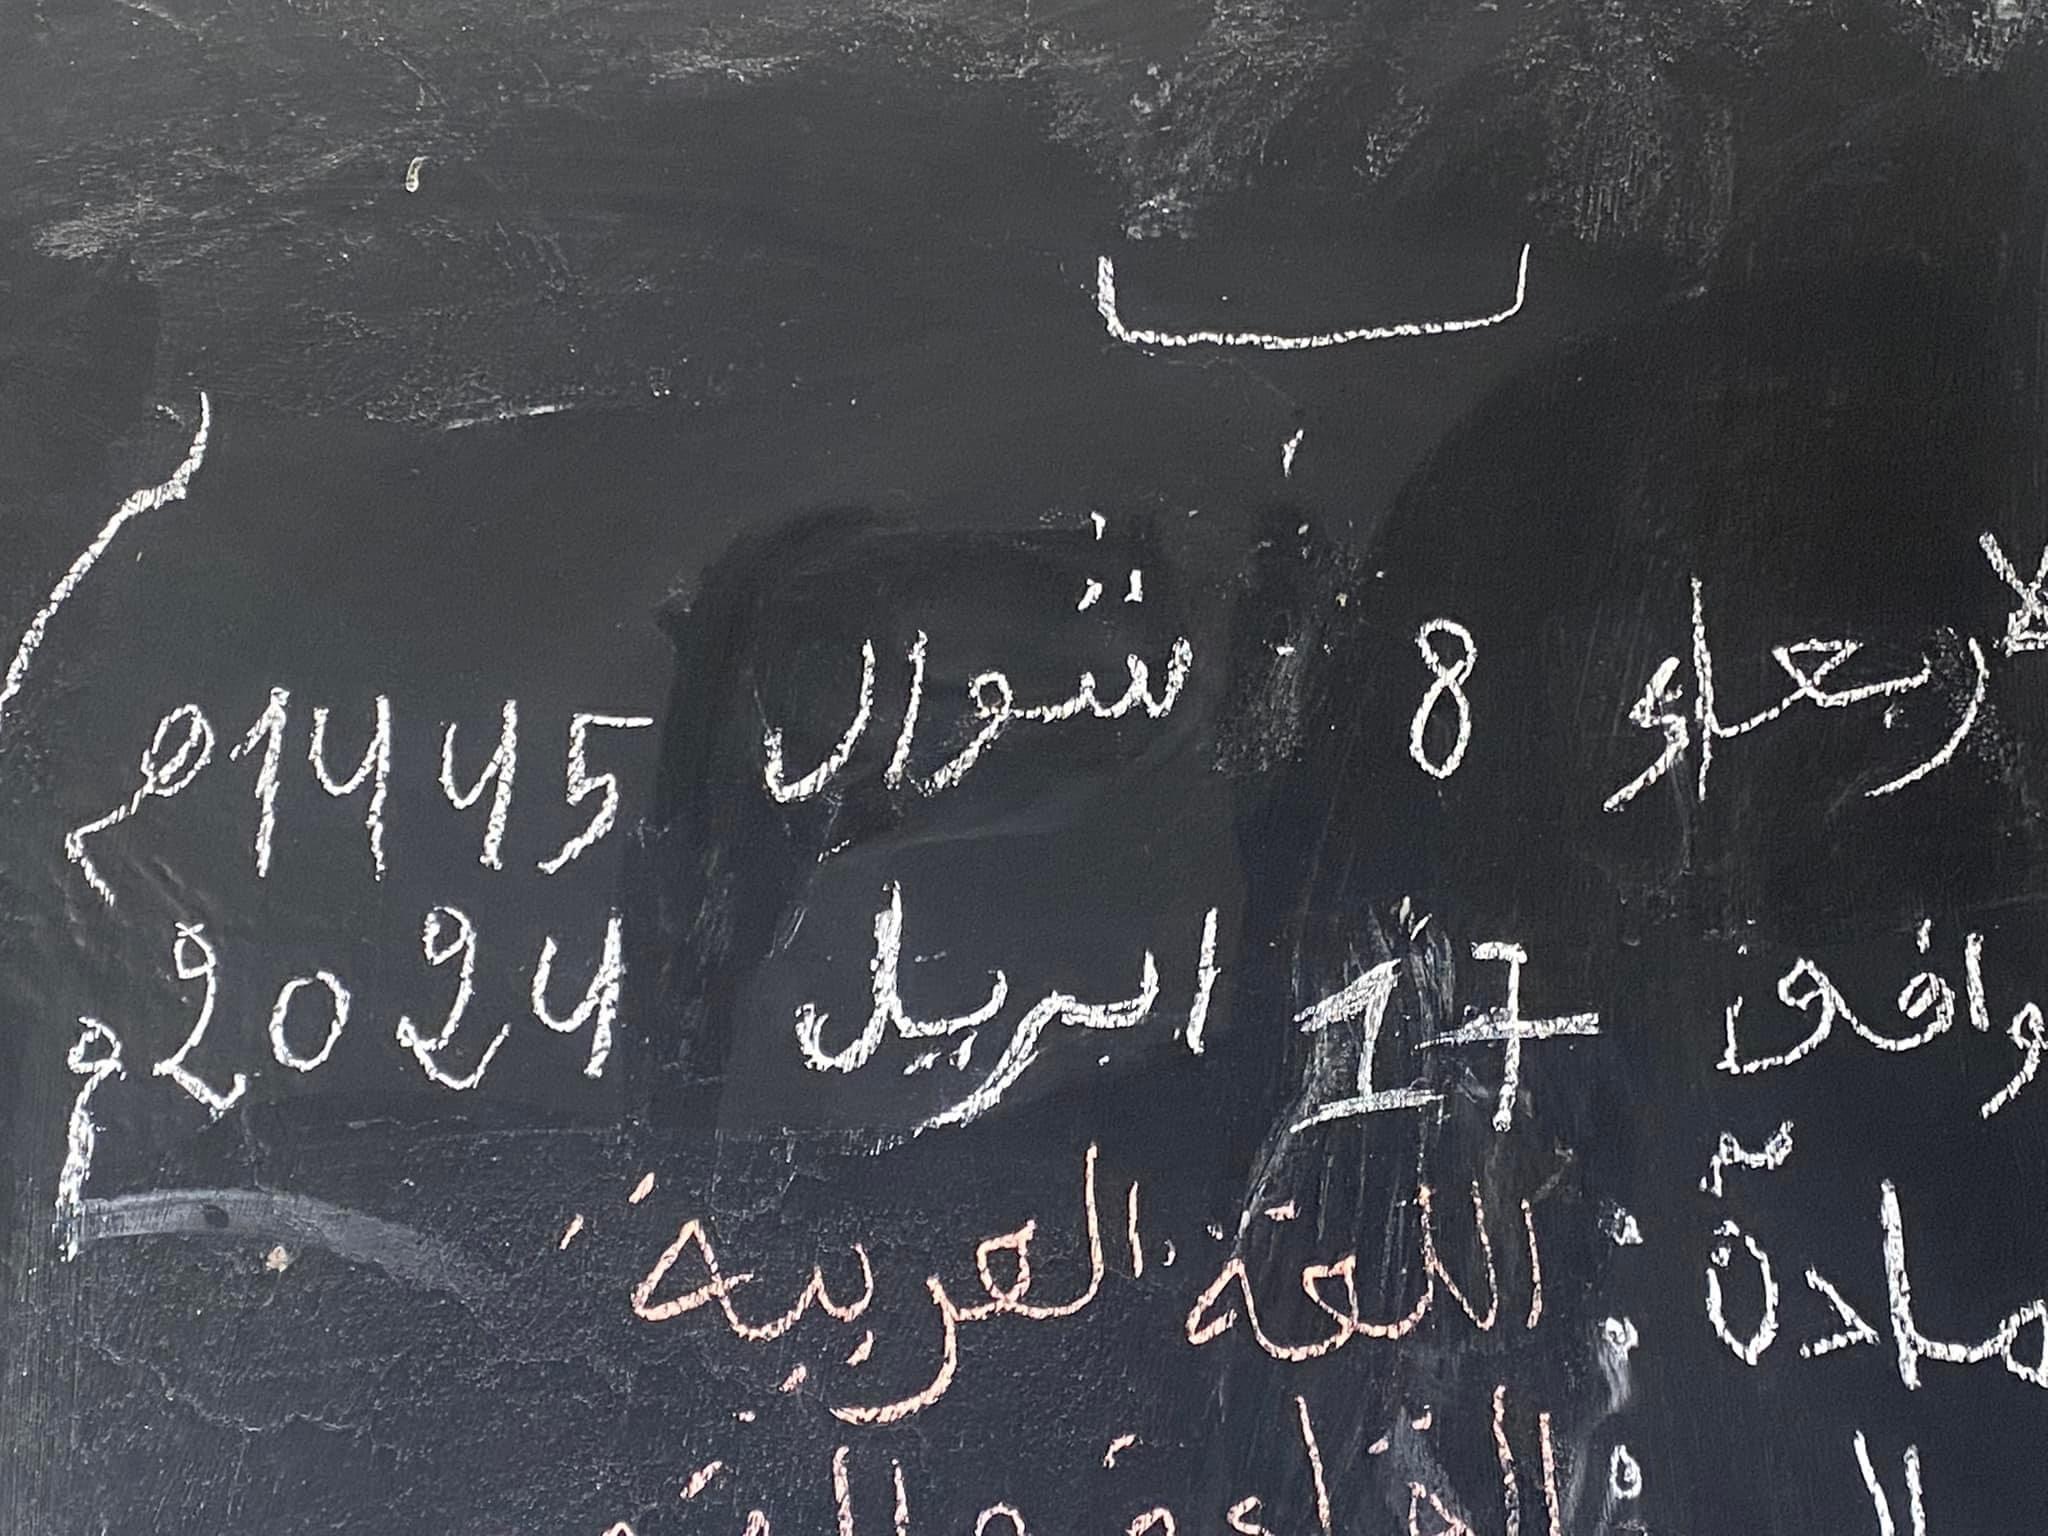 لاربعاء 8 شوال 1445ه
وافق 17 ابريل 2024م
مادة : اللغة العربية